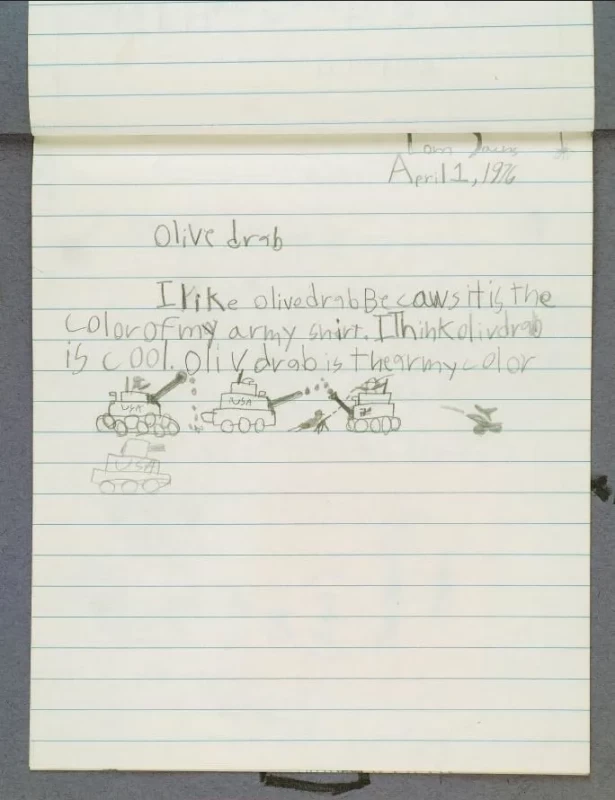 April 1, 1976
Olive drab
I like olive drab Becaws it is the
color of my army shirt. I Think oliv drab
is cool. oliv drab is the army color
USA USA
USA